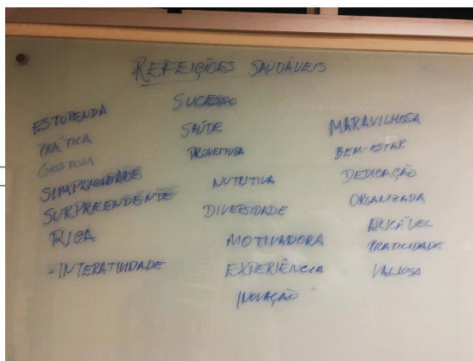 REFEIÇÕES SAUDÁVEIS
ESTUPENDA
PRÁTICA
GOSTOSA
SIMPLICIDADE
SURPREENDENTE
RICA
-INTERATIVIDADE
SUCESSO
SAÚDE
PROVEITOSA
NUTRITIVA
DIVERSIDADE
MOTIVADORA
EXPERIÊNCIA
INOVAÇÃO
MARAVILHOSA
BEM-ESTAR
DEDICAÇÃO
ORGANIZADA
APLICÁVEL
PRATICIDADE
VALIOSA